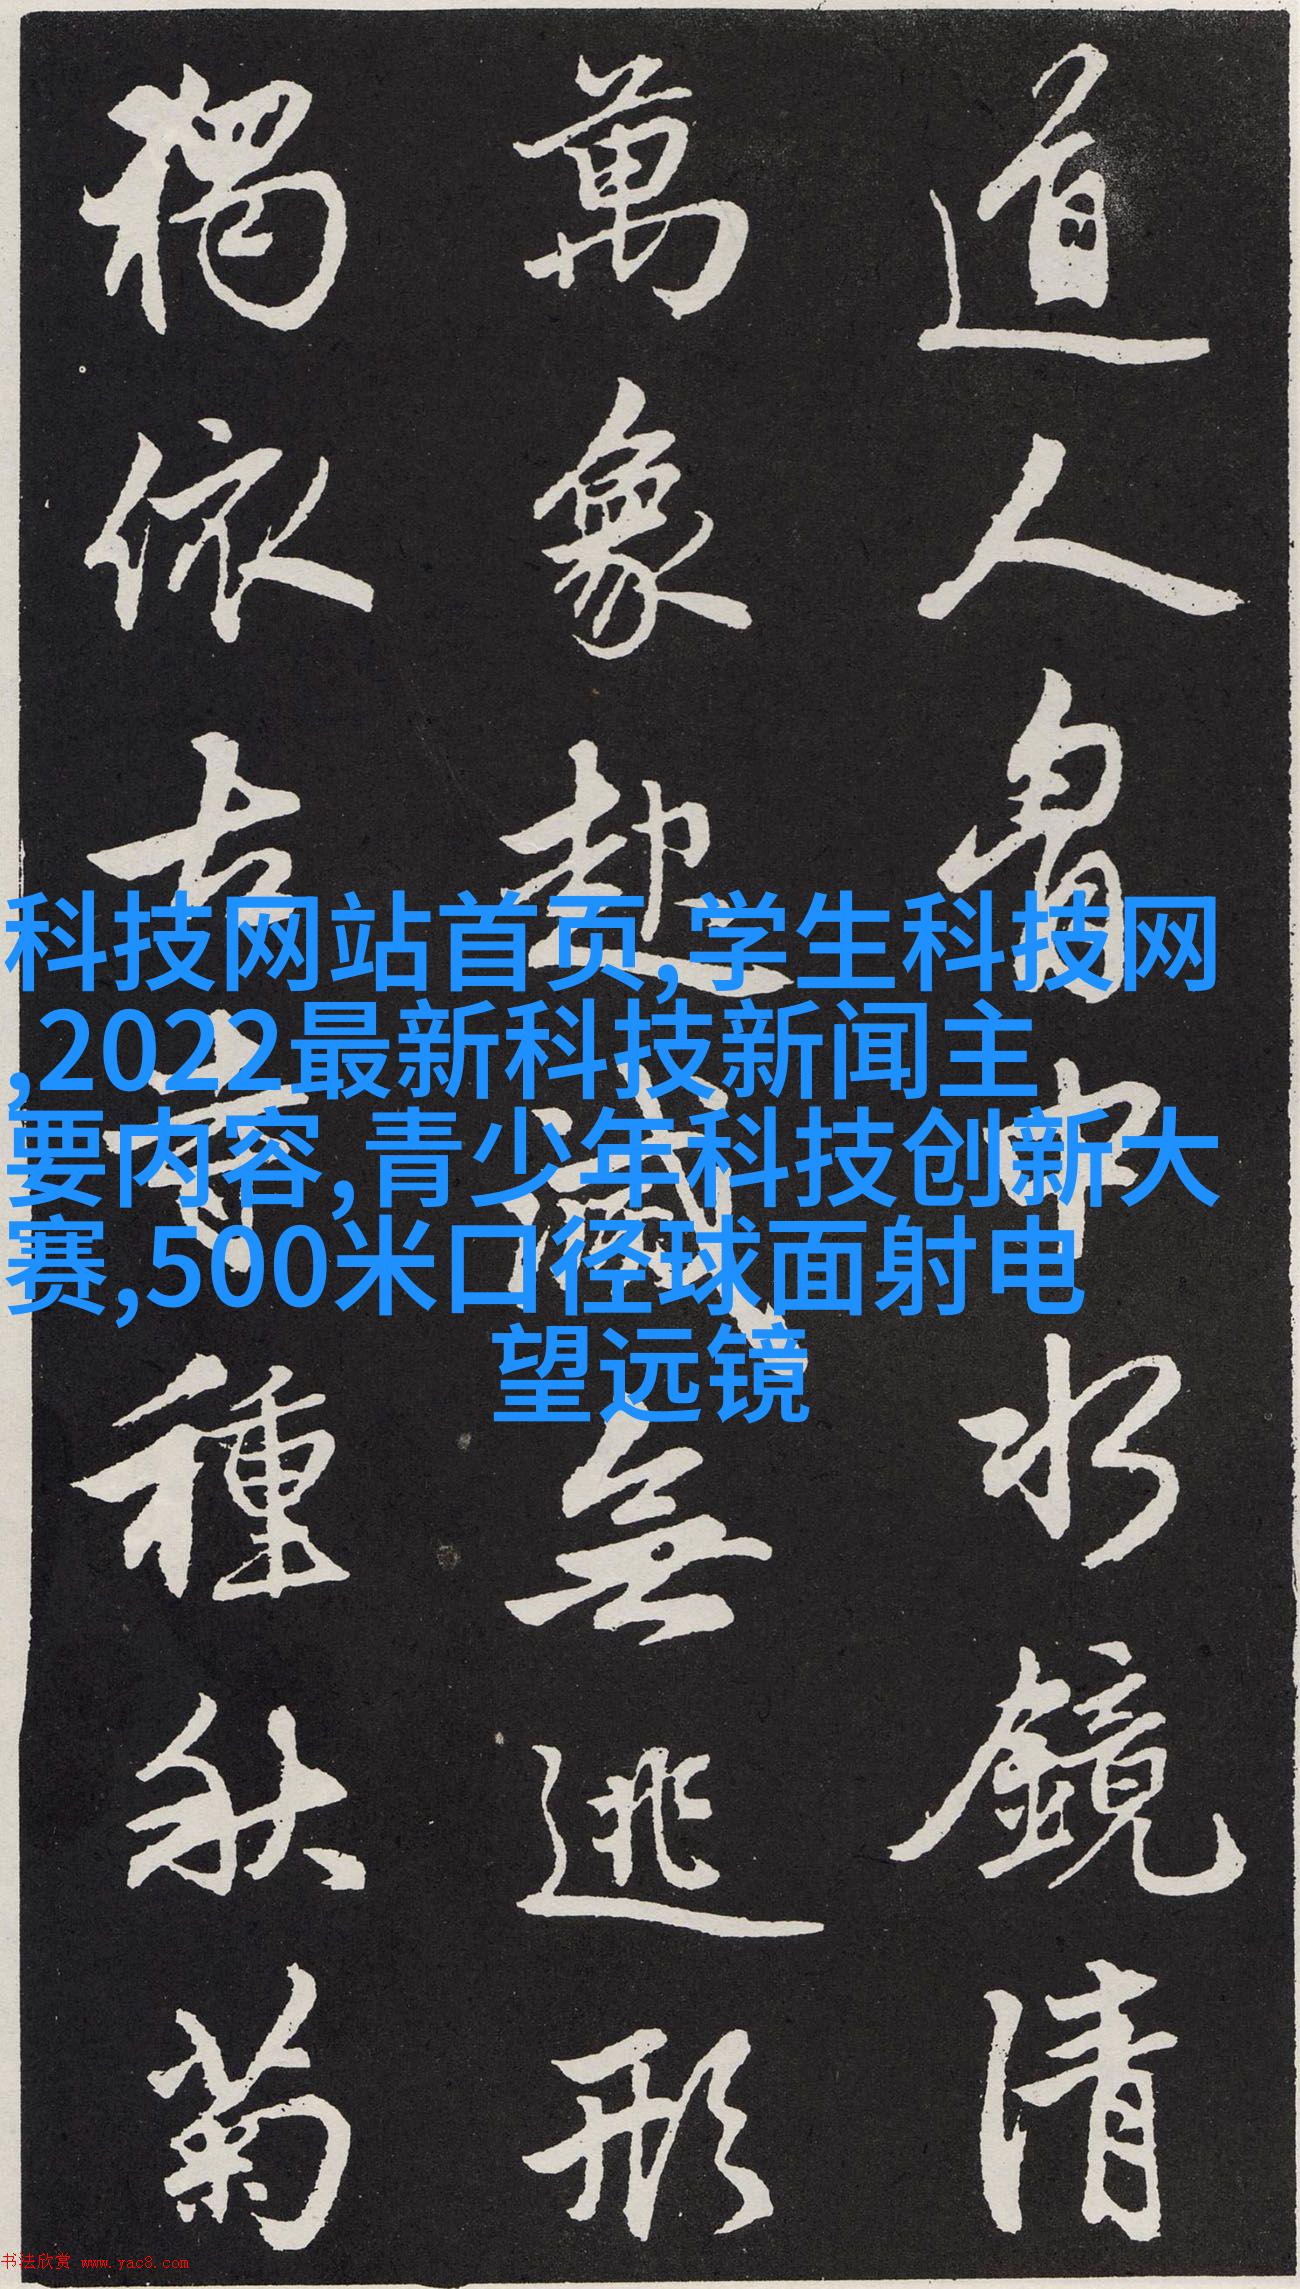 道人胷中水鏡清
萬象起滅無逃形
獨依古寺種秋菊
科技网站首页,学生科技网
,2022最新科技新闻主
要内容,青少年科技创新大
赛,500米口径球面射电
望远镜
书法欣赏 www.yac8.com